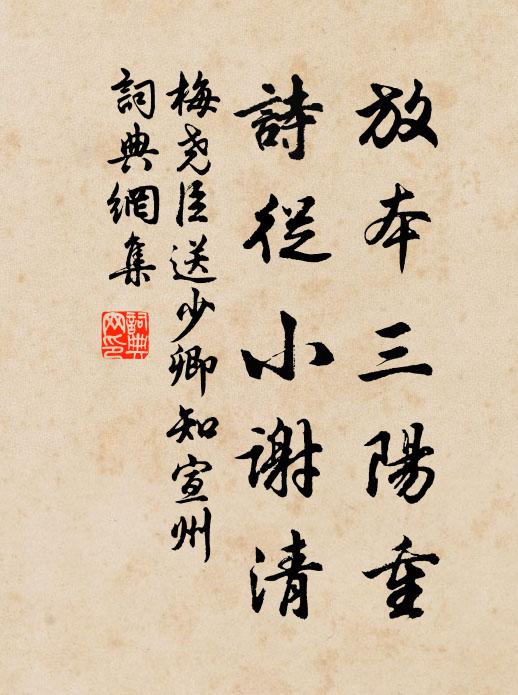 放本三陽重
詩從小謝清
梅堯臣送少卿知宣州
詞典網集
詞典網印